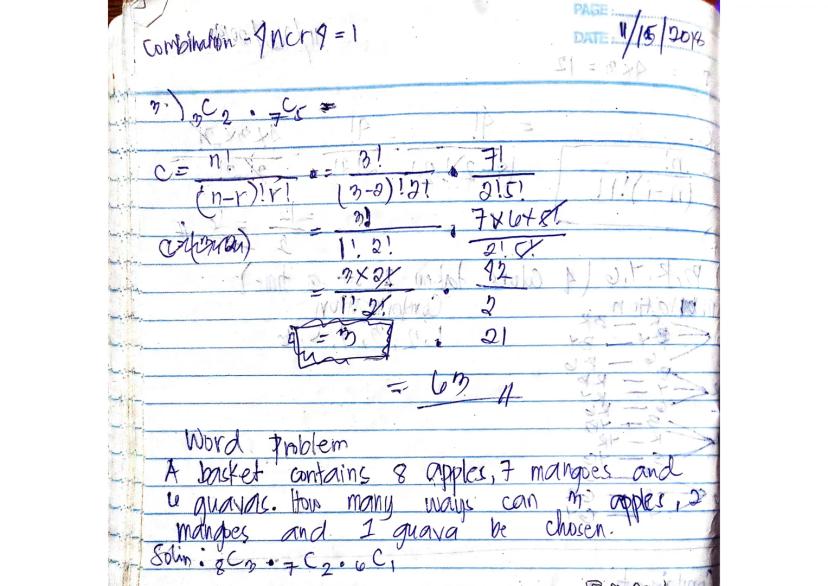 PAGE:
DATE: 11/15/2018
Combination - 9nCr9 = 1
3.) 3C2 · 7C5 =
C = n!/(n-r)!r! = 3!/(3-2)!2! · 7!/2!5!
= 3!/1!.2! · 7x6x5!/2!.5!
= 3x2!/1!.2! · 42/2
= 3 · 21
= 63 //
Word Problem
A basket contains 8 apples, 7 mangoes and
6 guavas. How many ways can 3 apples, 2
mangoes and 1 guava be chosen.
Soln: 8C3 · 7C2 · 6C1